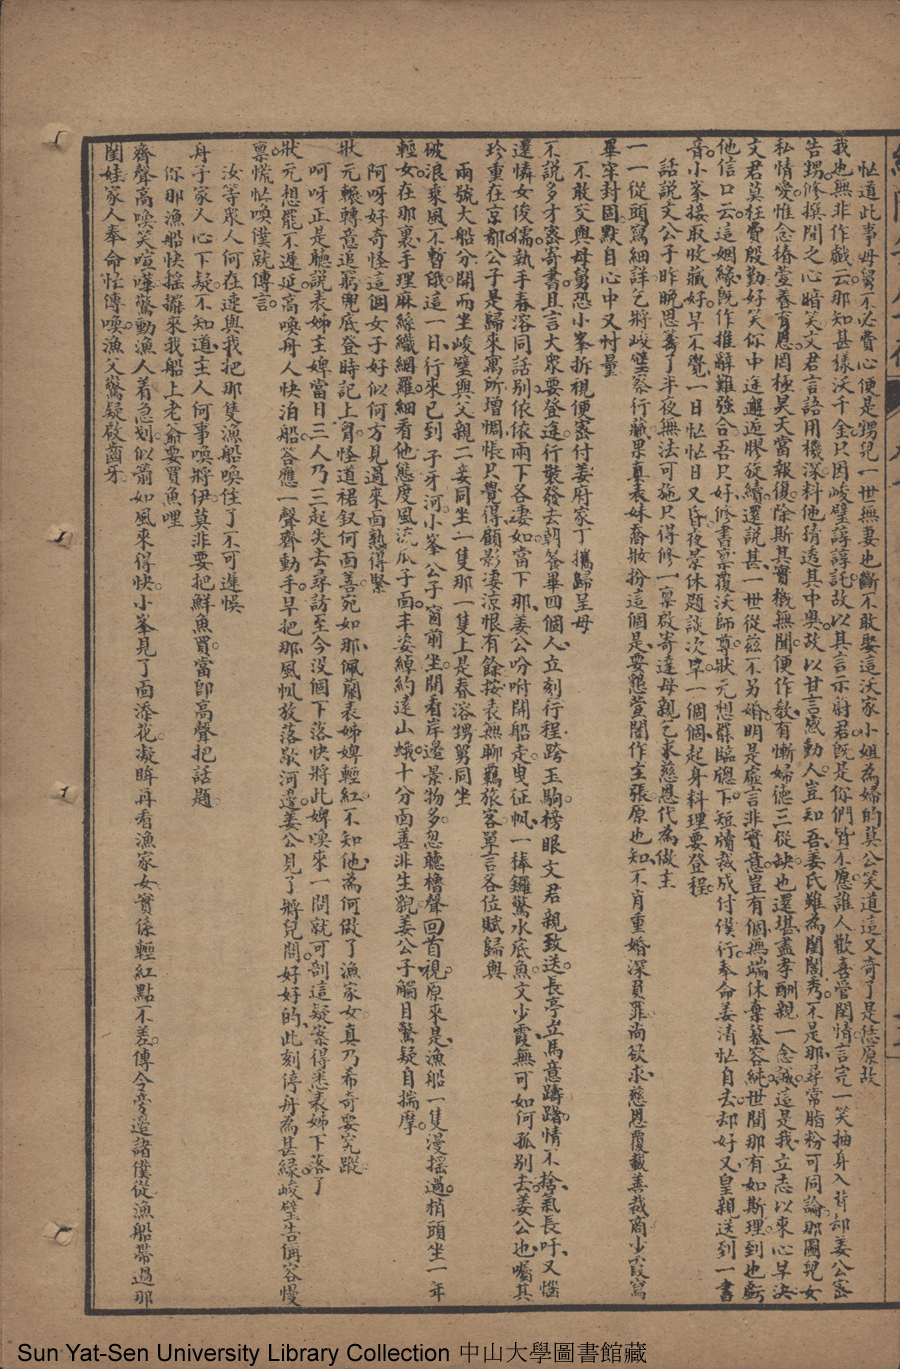 忙道此事母舅不必費心便是甥兒一世無妻也斷不敢娶這沃家小姐為婦的莫公笑道這又奇了是恁原故
我也無非作戲云那知甚樣沃千金只因峻璧諄諄託故以其言示蔚君既是你們皆不應誰人歡喜管閑情言完一笑抽身入背却姜公密
告甥修撰聞之心暗笑文君言語用機深料他猜透其中奧故以甘言感動人豈知吾姜氏雖為閨閣秀不是那尋常脂粉可同論那圖兒女
私情愛惟念椿萱養育恩罔極昊天當報復除斯其實槪無聞便作教有慚婦德三從缺也還堪盡孝酬親一念誠這是我立志以來心早決
文君莫枉費殷勤好笑你中途邂逅膠旋續還說甚一世從茲不另婚明是虛言非實意豈有個無端休棄慕容純世間那有如斯理到也虧
他信口云這姻緣旣作推辭難強合吾只好修書稟覆沃師尊狀元想罷臨牕下短牘裁成付僕行奉命姜清忙自去却好又皇親送到一書
音小峯接取收藏好早不覺一日忙忙日又昏夜景休題談次早一個個起身料理要登程
話說文公子昨晚思籌了半夜無法可施只得修一稟啟寄達母親乞求慈恩代為做主
一一從頭寫細詳乞將峻璧祭行藏果真表妹喬妝扮這個是要懇萱闈作主張原也知不肖重婚深員罪尚欲求慈恩覆載善裁商少霞寫
畢牢封固默自心中又忖量
不敢交與母舅恐小峯拆視便密付姜府家丁攜歸呈母
不說多才密寄書且言大衆要登途行裝發去朝餐畢四個人立刻行程跨玉駒榜眼文君親致送長亭立馬意躊躇情不捨氣長吁又惱
還憐女俊儒執手春溶同話別依依兩下各淒如當下那姜公吩咐開船走曳征帆一棒鑼驚水底魚文少霞無可如何孤別去姜公也囑其
珍重在京都公子是歸來寓所增惆悵只覺得顧影淒涼恨有餘按表無聊羈旅客單言各位賦歸與
兩號大船分開而坐峻璧與父親二妾同坐一隻那一隻上是春溶甥舅同坐
破浪乘風不暫俄這一日行來已到子牙河小峯公子窗前坐開看岸邊景物多忽聽櫓聲回首視原來是漁船一隻漫搖過梢頭坐一年
輕女在那裏手理麻絲織網羅細看他態度風流瓜子面丰姿綽約遠山蛾十分面善非生貌姜公子觸目驚疑自揣摩
阿呀好奇怪這個女子好似何方見過來面熟得緊
狀元輾轉意追窮兜底登時記上胷怪道裙釵何面善宛如那佩蘭表姊婢輕紅不知他為何做了漁家女真乃希奇要究蹤
呵呀正是聽說表姊主婢當日三人乃三起失去尋訪至今沒個下落快將此婢喚來一問就可剖這疑案得悉表姊下落了
狀元想罷不遲延高喚舟人快泊船答應一聲齊動手早把那風帆放落歇河邊姜公見了將兒問好好的此刻停舟為甚緣峻璧告稱容慢
稟慌忙喚僕就傳言
汝等衆人何在速與我把那隻漁船喚住了不可遲悞
舟子家人心下疑不知道主人何事喚將伊莫非要把鮮魚買當卽高聲把話題
你那漁船快搖攏來我船上老爺要買魚哩
齊聲高喚笑喧嘩驚動漁人着急划似箭如風來得快小峯見了面添花凝眸再看漁家女實係輕紅點不差傳令旁邊諸僕從漁船帶過那
閨娃家人奉命忙傳喚漁父驚疑啟齒牙
Sun Yat-Sen University Library Collection 中山大學圖書館藏